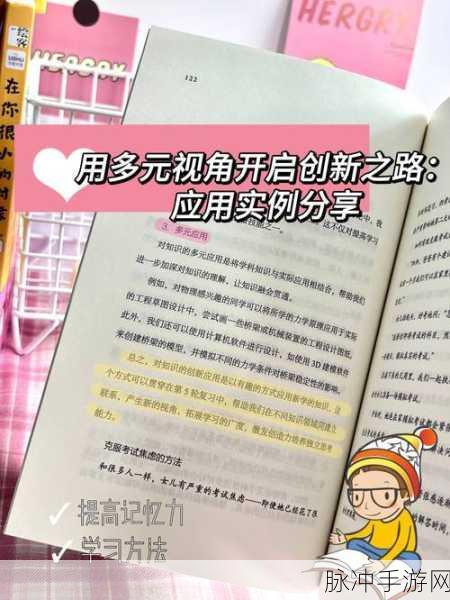 HERGRY
HERGRY
绘客
在你很小的时候
122
用多元视角开启创新之路：
应用实例分享
技能之一。
这不仅对提高学习
3. 多元应用
对知识的多元应用是将学科知识与实际应用相结合，帮助我们
进一步加深对知识的理解，让知识融会贯通。
例如，对物理感兴趣的同学可以将所学的力学原理应用于实际
的工程草图设计中，尝试画一些桥梁或机械装置的工程设计图纸。
此外，我们还可以使用计算机软件进行设计，如使用3D建模软件
来创建桥梁的模型，并模拟不同的力学条件对桥梁稳定性的影响。
总之，对知识的创新应用是以有趣的方式应用新学的知识，这
个方式可以贯穿在第5轮复习中，帮助我们在不同知识领域间建立
联系，产生新的视角，拓展学习的广度，激发创造力培养独立思考
能力。
克服考试焦虑的方法
和很多人一样，女儿有严重的考试焦虑——即使她已经花了很
提高记忆力
学习方法
脉冲手游网